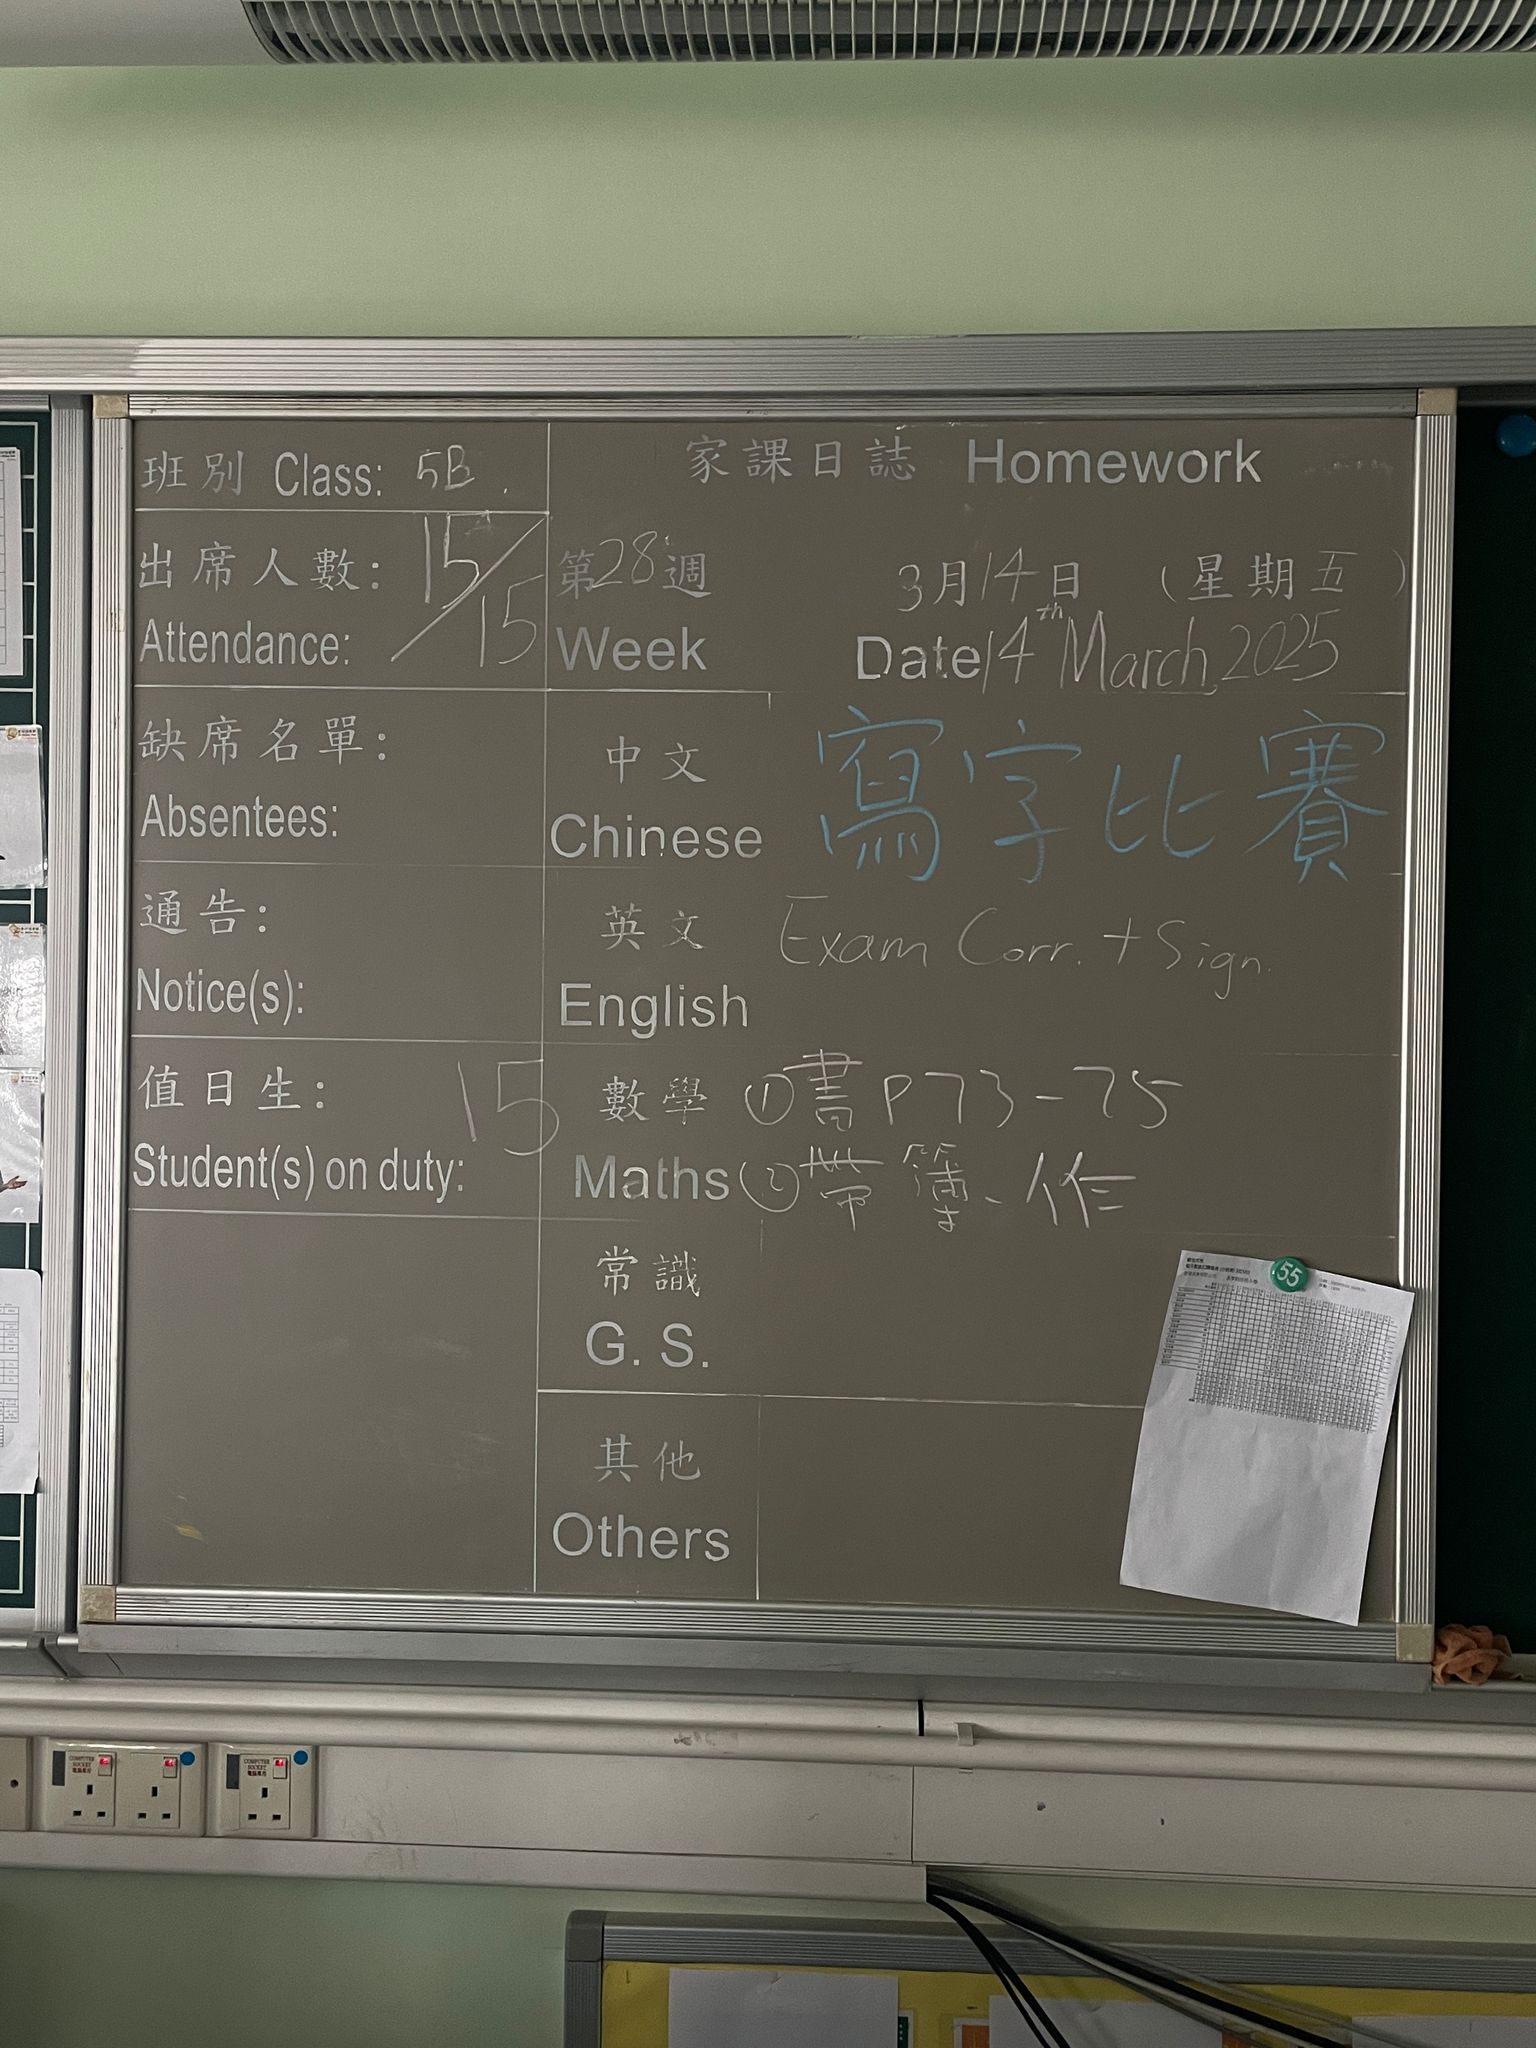 班別 Class: 5B.
出席人數: 15/15
Attendance:
缺席名單:
Absentees:
通告:
Notice(s):
值日生: 15
Student(s) on duty:
家課日誌 Homework
第28週 3月14日 (星期五)
Week Date 14th March, 2025
中文 寫字比賽
Chinese
英文 Exam Corr. + Sign.
English
數學 ①書P73-75
Maths ②帶簿、作
常識
G. S.
其他
Others
55
COMPUTER SOCKET
電腦專用
COMPUTER SOCKET
電腦專用